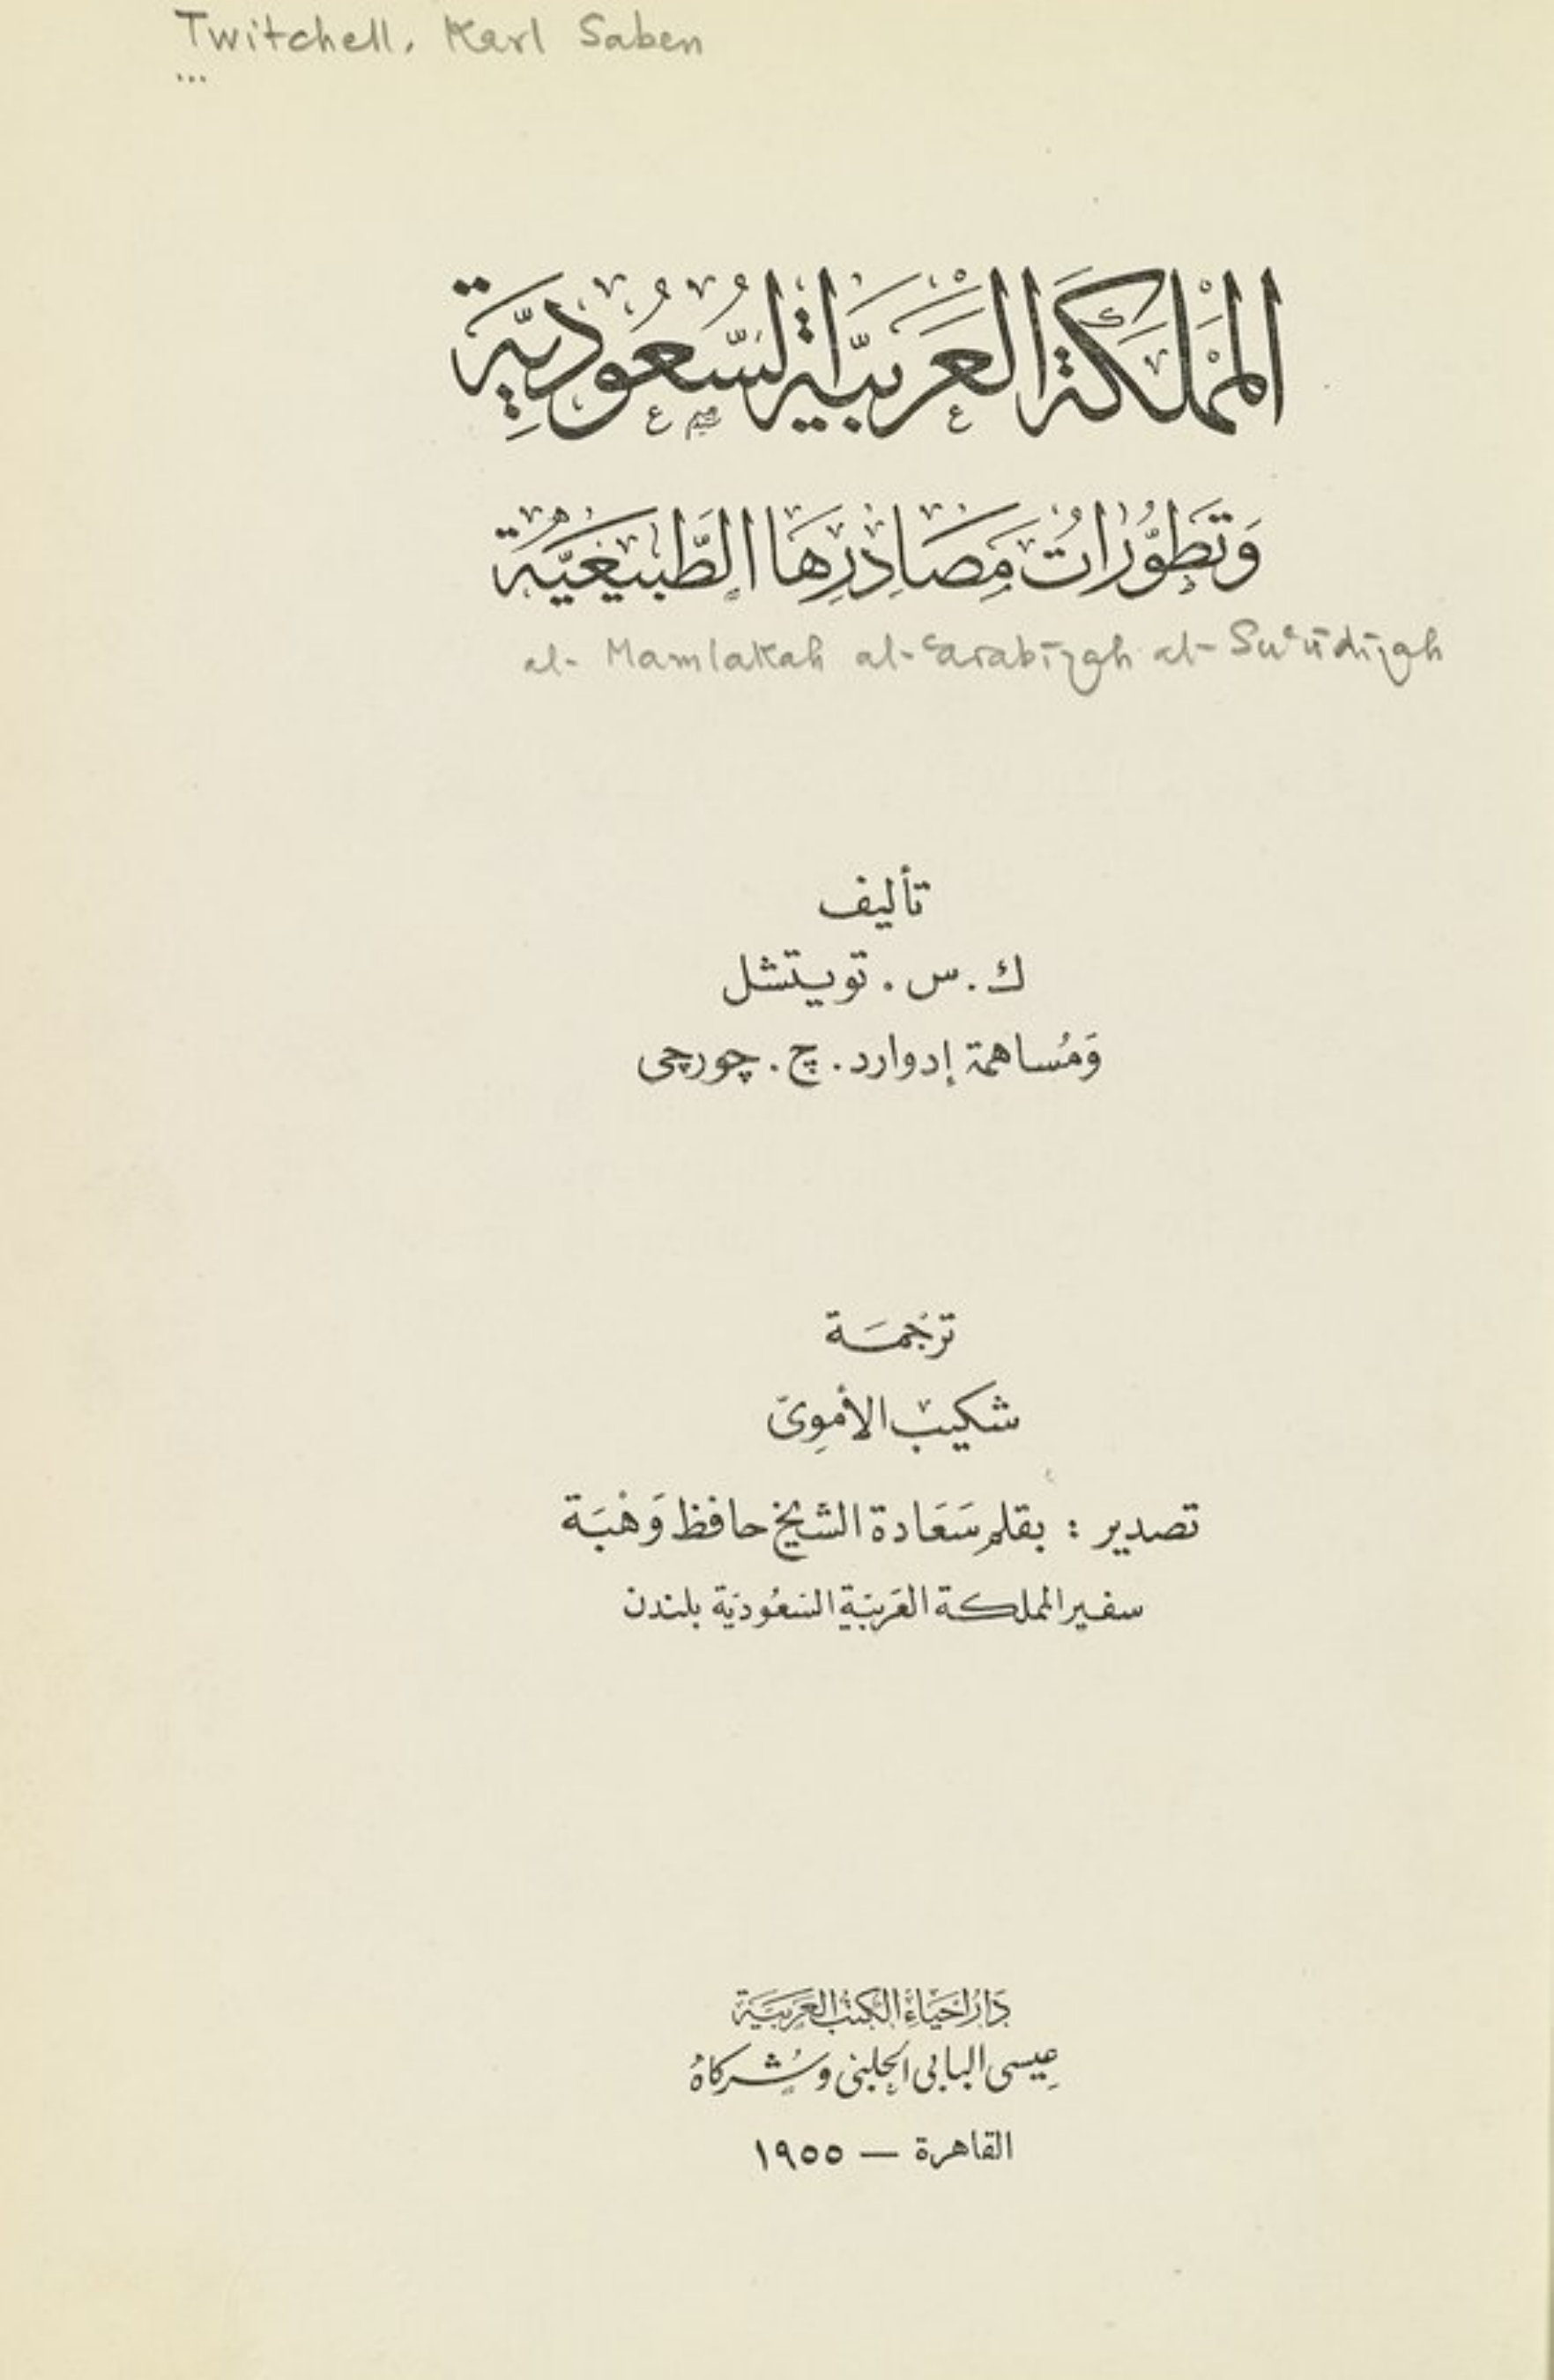 Twitchell, Karl Saben
...
المَمْلَكَة العَرَبيَّة السُّعُوديَّة
وَتَطَوُّرَاتُ مَصَادِرِهَا الطَّبِيعِيَّة
al- Mamlakah al-ʿarabīyah al-Suʿūdīyah
تأليف
ك . س . تويتشل
وَمُساهمة إدوارد . چ . چورچى
ترجمَة
شكيب الأموِىّ
تصدير : بقلم سَعَادة الشيخ حافظ وَهْبَة
سفير المملكة العَربيَّة السَعُوديَة بلندن
دَارُ إحيَاءِ الكتبُ العَربيَّة
عِيسى البابى الحلبى وشُركاهُ
القاهرة — ١٩٥٥